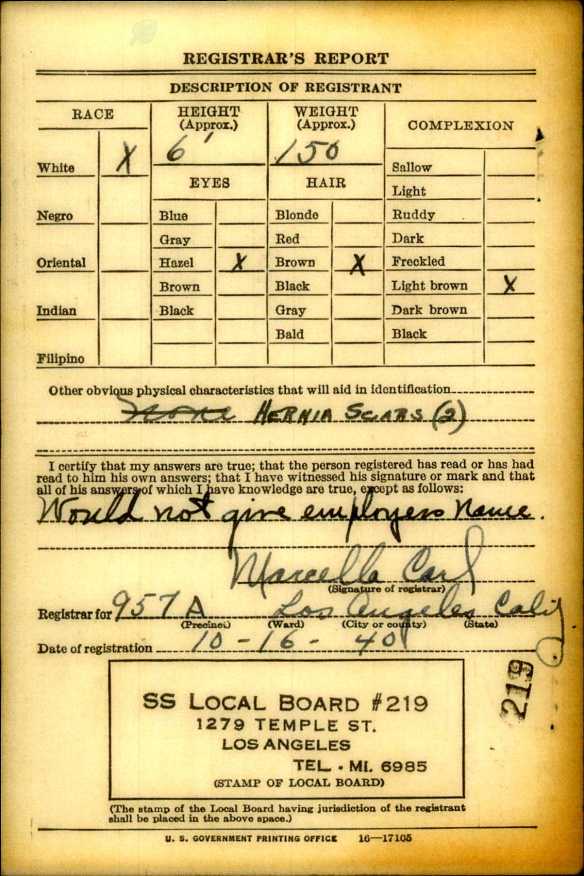 REGISTRAR'S REPORT
DESCRIPTION OF REGISTRANT
RACE HEIGHT (Approx.) WEIGHT (Approx.) COMPLEXION
6' 150
White X Sallow
EYES HAIR Light
Negro Blue Blonde Ruddy
Gray Red Dark
Oriental Hazel X Brown X Freckled
Brown Black Light brown X
Indian Black Gray Dark brown
Bald Black
Filipino
Other obvious physical characteristics that will aid in identification
None HERNIA SCARS (2)
I certify that my answers are true; that the person registered has read or has had
read to him his own answers; that I have witnessed his signature or mark and that
all of his answers of which I have knowledge are true, except as follows:
Would not give employers name.
Marcella Carl
(Signature of registrar)
Registrar for 957 A Los Angeles Calif.
(Precinct) (Ward) (City or county) (State)
Date of registration 10-16-40
219
SS LOCAL BOARD #219
1279 TEMPLE ST.
LOS ANGELES
TEL - MI. 6985
(STAMP OF LOCAL BOARD)
(The stamp of the Local Board having jurisdiction of the registrant
shall be placed in the above space.)
U. S. GOVERNMENT PRINTING OFFICE 16—17105